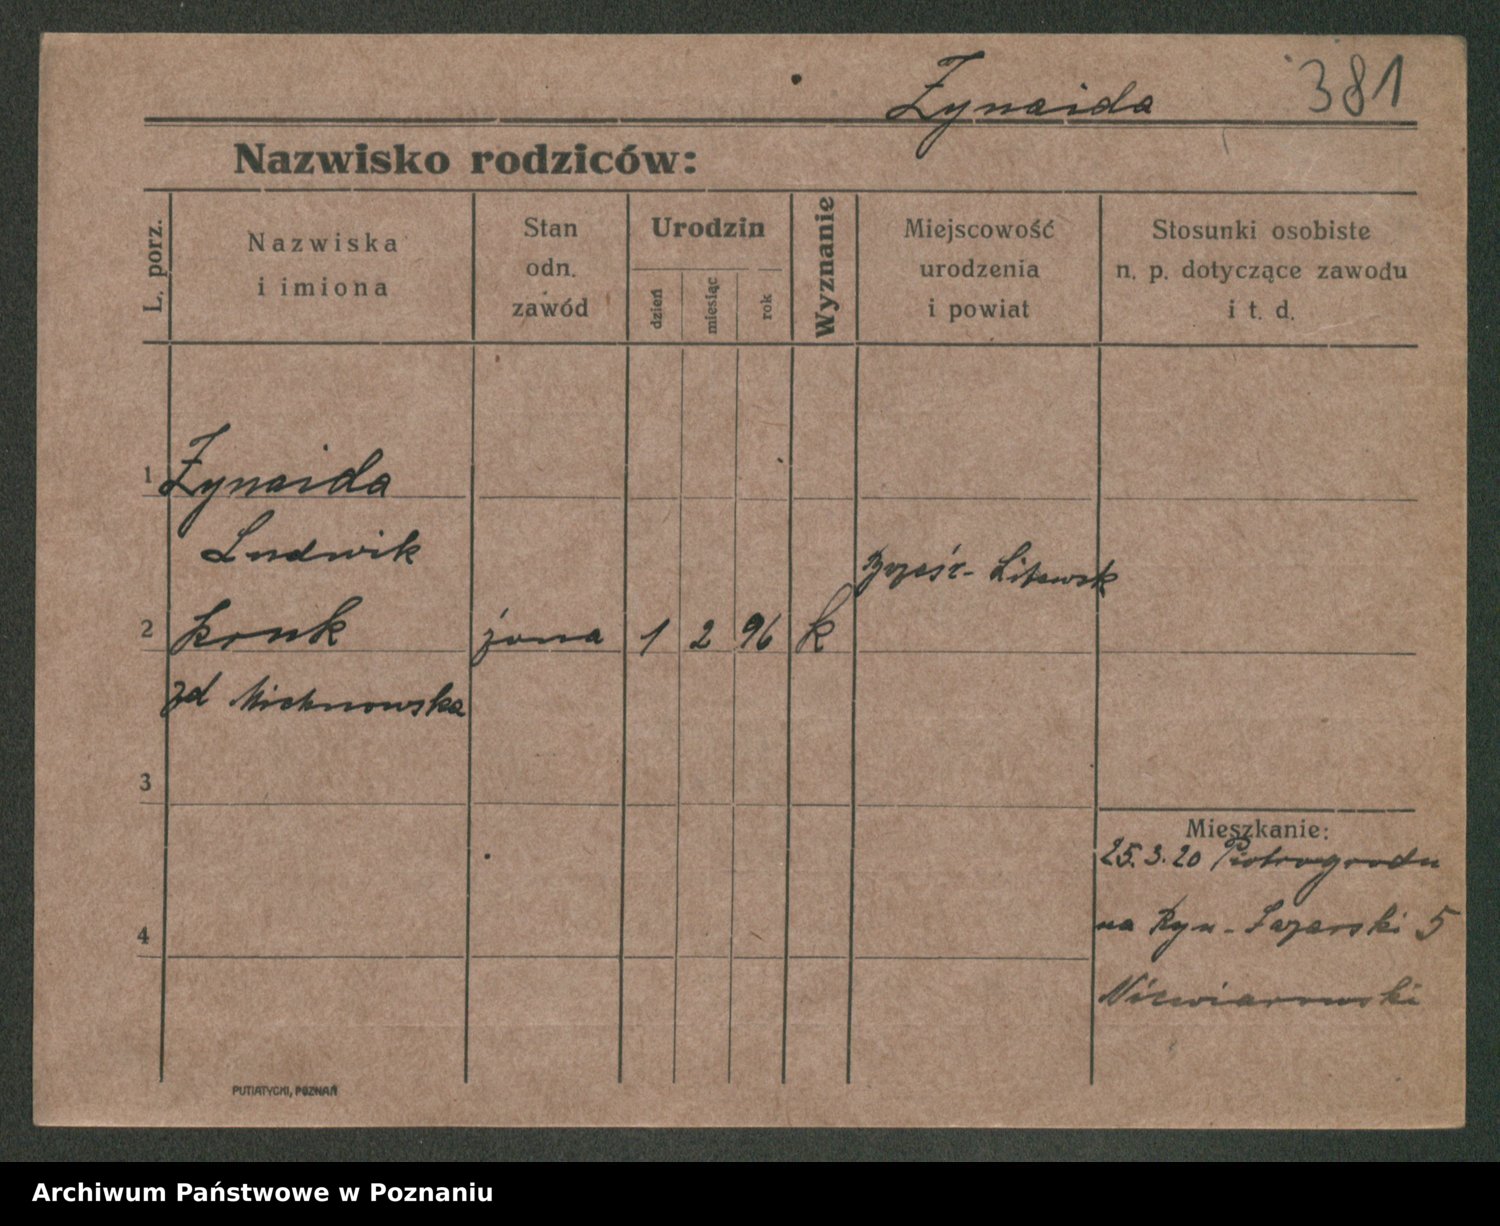 Zynaida 381
Nazwisko rodziców:
L. porz.
Nazwiska
i imiona
Stan
odn.
zawód
Urodzin
dzień
miesiąc
rok
Wyznanie
Miejscowość
urodzenia
i powiat
Stosunki osobiste
n. p. dotyczące zawodu
i t. d.
1 Zynaida
Ludwik
Brześć-Litewsk
2 Kruk żona 1 2 96 k
zd Michnowska
3
Mieszkanie:
25.3.20 Piotrogrodu
na Ryn-Łazarski 5
4
PUTIATYCKI, POZNAŃ
Archiwum Państwowe w Poznaniu